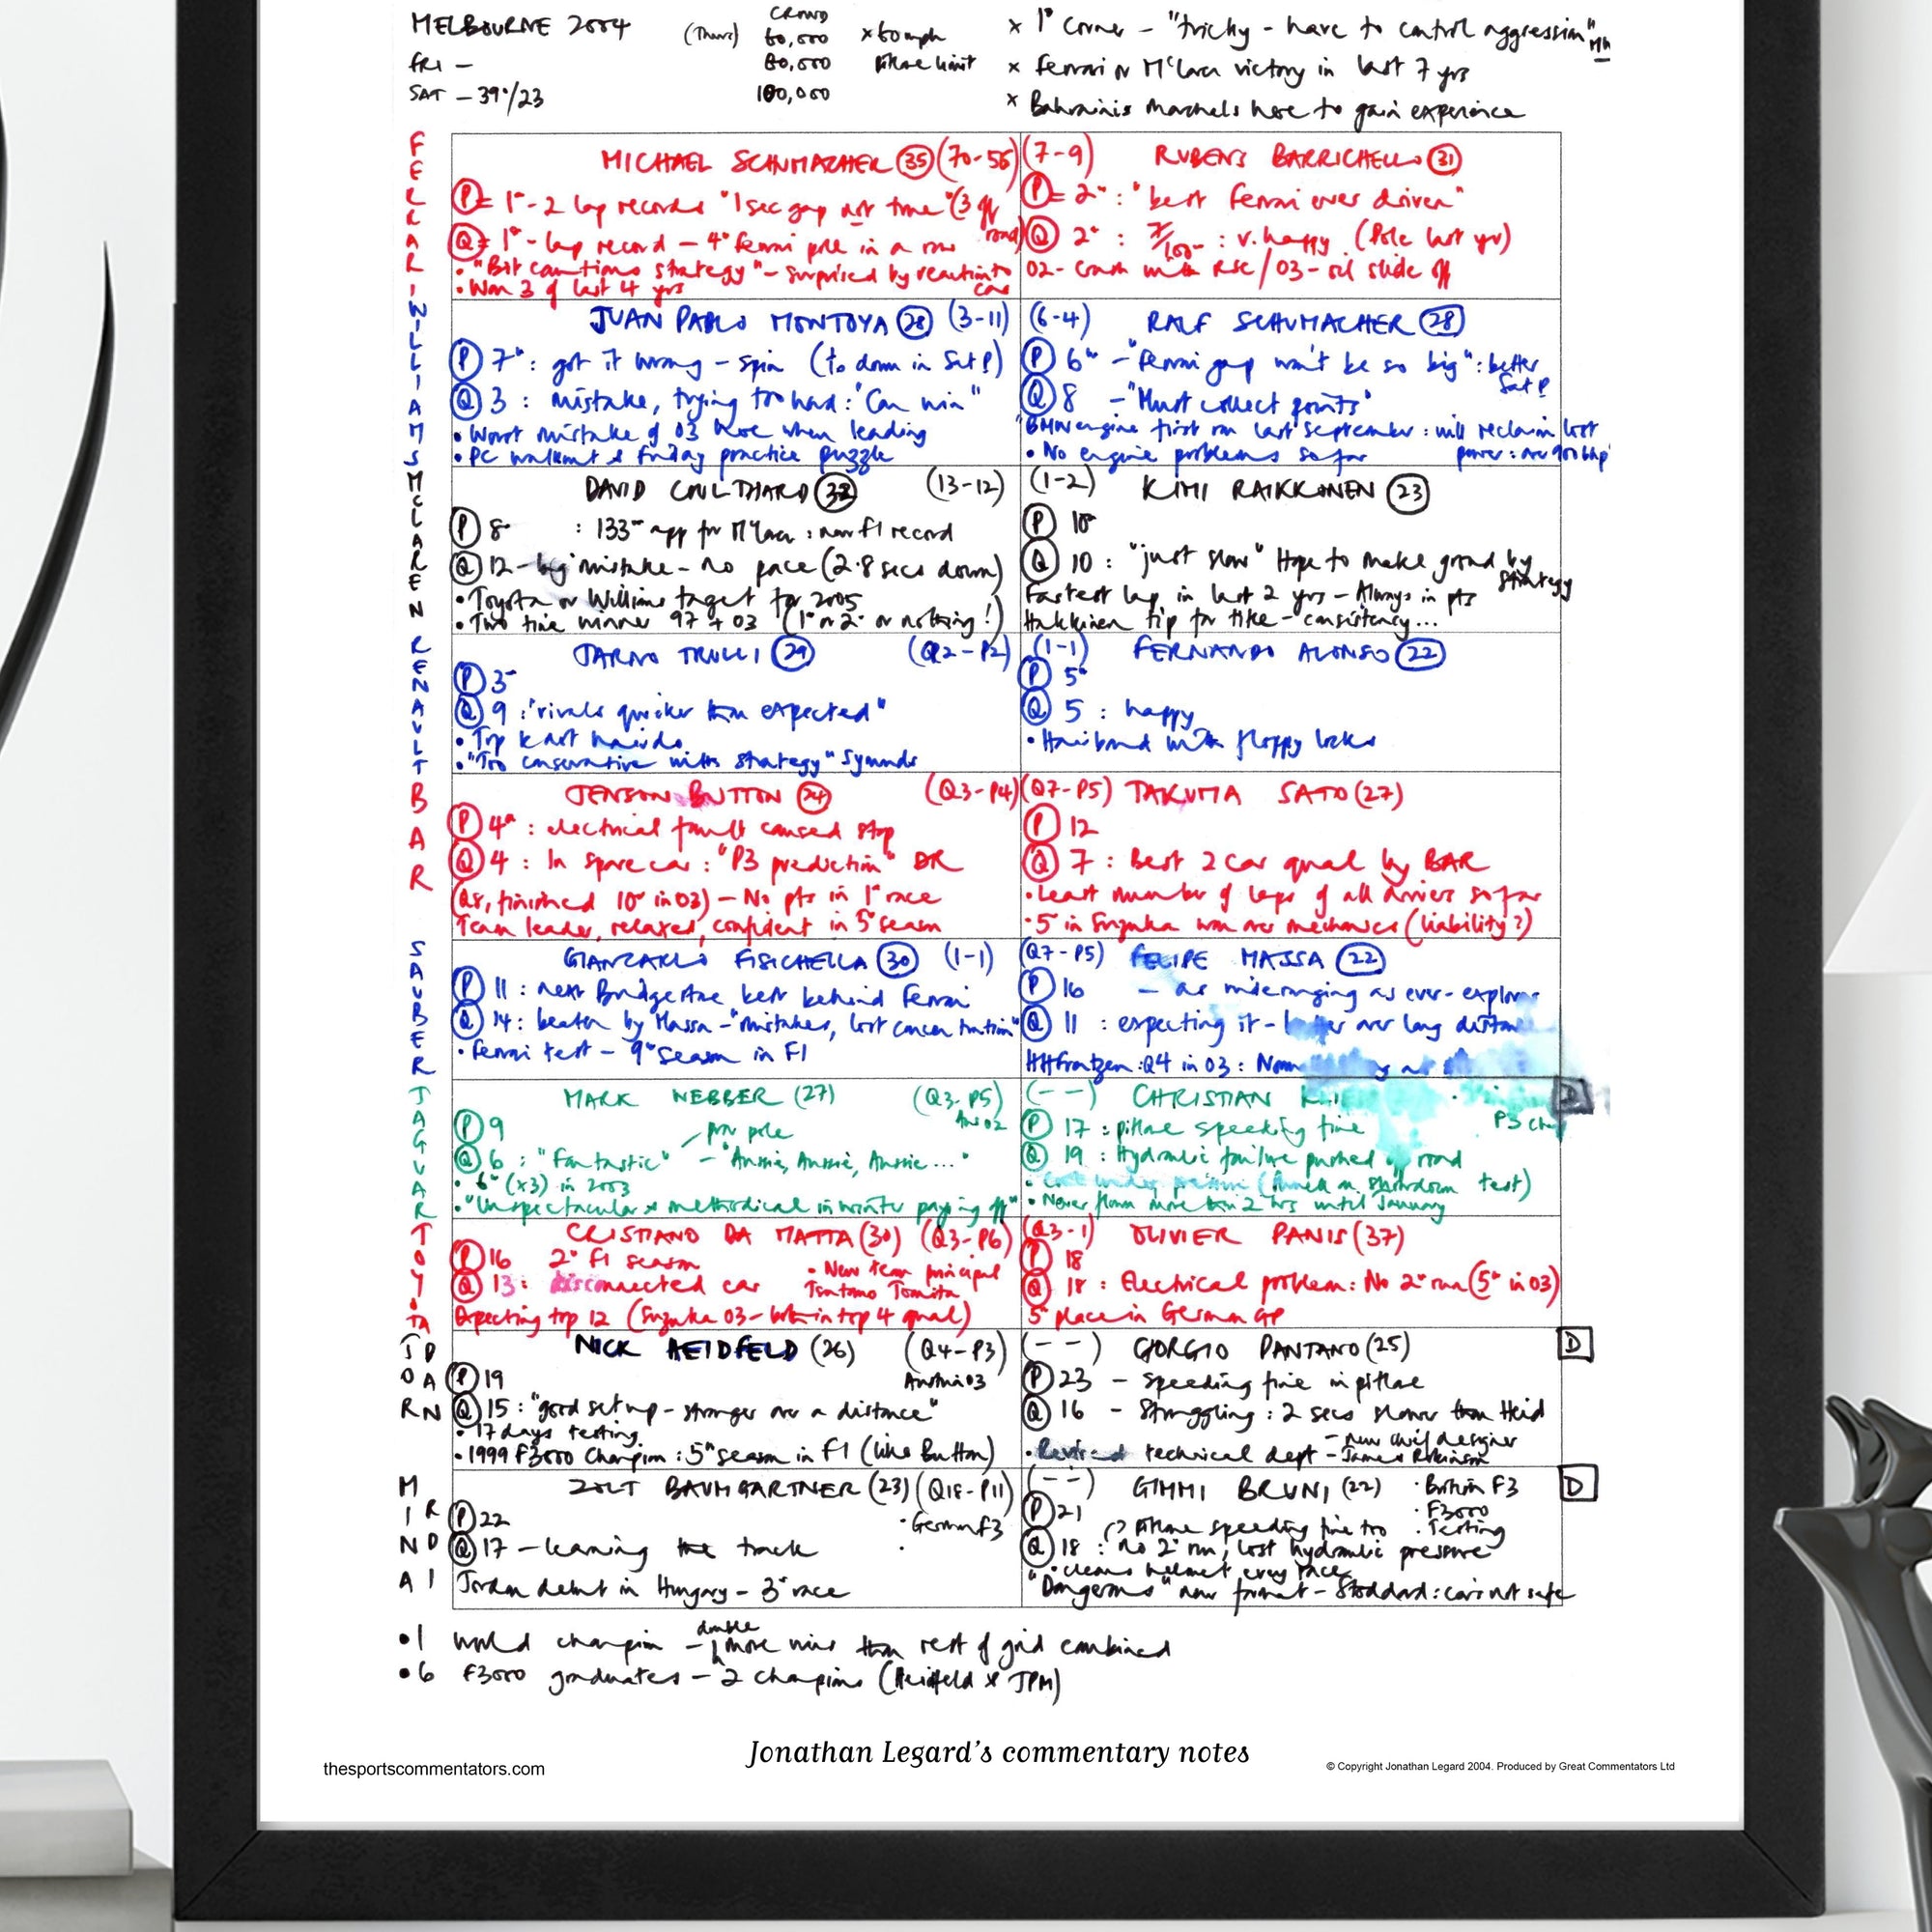 MELBOURNE 2004 (Thurs) CROWD 60,000 x 60mph x 1st Corner - "tricky - have to control aggression" MW
FRI - 80,000 Pitlane limit x Ferrari or McLaren victory in last 7 yrs
SAT - 39°/23 100,000 x Bahrainis Marshels here to gain experience
FERRARI
MICHAEL SCHUMACHER 35 (70-55)
P = 1st - 2 lap records "1 sec gap not true" (3 off road)
Q = 1st - lap record - 4th Ferrari pole in a row
• "Bit cautious strategy" - surprised by reaction to car
• Won 3 of last 4 yrs
(7-9) RUBENS BARRICHELLO 31
P = 2nd : "best Ferrari ever driven"
Q 2nd : 7/100 : v. happy (Pole last yr)
02 - Crash with RSC / 03 - oil slide off
WILLIAMS
JUAN PABLO MONTOYA 28 (3-11)
P 7th : got it wrong - spin (10 down in Sat P)
Q 3 : mistake, trying too hard : "Can win"
• Worst mistake of 03 here when leading
• PC walkout & Friday practice puzzle
(6-4) RALF SCHUMACHER 28
P 6th - "Ferrari gap won't be so big" : better Sat P
Q 8 - "Must collect points"
BMW engine first run last September : will reclaim lost
• No engine problems so far power : over 900 bhp
MCLAREN
DAVID COULTHARD (13-12)
P 8th : 133rd app for McLaren : new F1 record
Q 12 - big mistake - no pace (2.8 secs down)
• Toyota or Williams target for 2005
• Two time winner 97 + 03 (1st or 2nd or nothing!)
(1-2) KIMI RAIKKONEN 23
P 10th
Q 10 : "just slow" Hope to make ground by strategy
Fastest lap in last 2 yrs - Always in pts
Hakkinen tip for title - consistency...
RENAULT
JARNO TRULLI 29 (Q2-P2)
P 3rd
Q 9 : "rivals quicker than expected"
• Top kart hairdo
• "Too conservative with strategy" Symonds
(1-1) FERNANDO ALONSO 22
P 5th
Q 5 : happy
• Hairband with floppy locks
BAR
JENSON BUTTON 24 (Q3-P4)
P 4th : electrical fault caused stop
Q 4 : In spare car : "P3 prediction" DR
(Q8, finished 10th in 03) - No pts in 1st race
Team leader, relaxed, confident in 5th season
(Q7-P5) TAKUMA SATO (27)
P 12
Q 7 : Best 2 car qual by BAR
• Least number of laps of all drivers so far
• 5th in Suzuka won over mechanics (liability?)
SAUBER
GIANCARLO FISICHELLA 30 (1-1)
P 11 : next Bridgestone best behind Ferrari
Q 14 : beaten by Massa - "mistakes, lost concentration"
• Ferrari test - 9th season in F1
(Q7-P5) FELIPE MASSA 22
P 16 - as wideranging as ever - explorer
Q 11 : expecting it - better over long distance
HHFrentzen : Q4 in 03
JAGUAR
MARK WEBBER (27) (Q3-P5) Aus 02
P 9 for pole
Q 6 : "Fantastic" - "Aussie, Aussie, Aussie..."
• 6th (x3) in 2003
• "Unspectacular & methodical in winter paying off"
(--) CHRISTIAN D
P 17 : pitlane speeding fine
Q 19 : Hydraulic failure pushed off road
test)
• Never flown more than 2 hrs until January
TOYOTA
CRISTIANO DA MATTA (30) (Q3-P6)
P 16 2nd F1 season • New team principal
Q 13 : disconnected car Tsutomo Tomita
Expecting top 12 (Suzuka 03 - both in top 4 qual)
(Q3-1) OLIVIER PANIS (37)
P 18
Q 18 : Electrical problem : No 2nd run (5th in 03)
5th place in German GP
JORDAN
NICK HEIDFELD (26) (Q4-P3)
P 19 Austria 03
Q 15 : "good set up - stronger over a distance"
• 17 days testing
• 1999 F3000 Champion : 5th season in F1 (like Button)
(--) GIORGIO PANTANO (25) D
P 23 - Speeding fine in pitlane
Q 16 - Struggling : 2 secs slower than Heid
- new chief designer
• Revised technical dept - James Robinson
MINARDI
ZOLT BAUMGARTNER (23) (Q18-P11)
P 22 • German F3
Q 17 - learning the track
Jordan debut in Hungary - 3rd race
(--) GIMMI BRUNI (22) • British F3 D
P 21 • F3000
pitlane speeding fine too • Testing
Q 18 : no 2nd run, lost hydraulic pressure
• cleans helmet every race
"Dangerous" new format - Stoddard : cars not safe
• 1 world champion - double more wins than rest of grid combined
• 6 F3000 graduates - 2 champions (Heidfeld & JPM)
Jonathan Legard's commentary notes
thesportscommentators.com
© Copyright Jonathan Legard 2004. Produced by Great Commentators Ltd